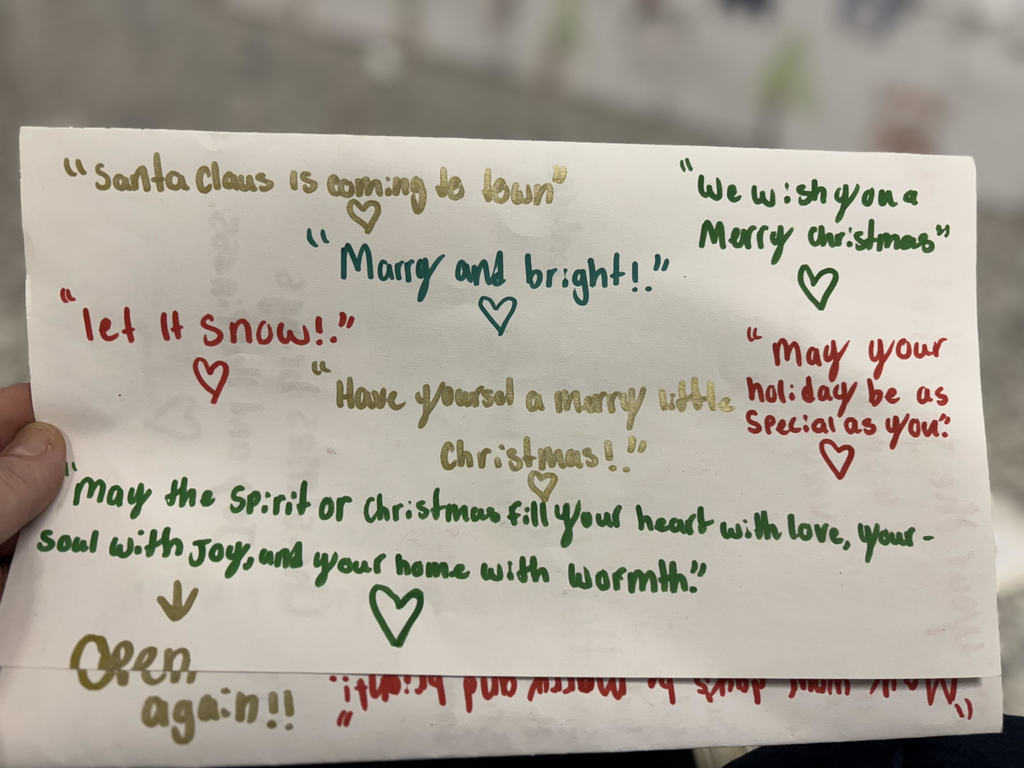 "Santa Claus is coming to town"
"We wish you a
Merry christmas"
"Marry and bright!."
"let It snow!."
"May your
holiday be as
special as you."
"Have yoursel a marry little
christmas!."
"May the spirit or christmas fill your heart with love, your-
soul with Joy, and your home with wormth."
Open
again!!
days be marry and bright!."